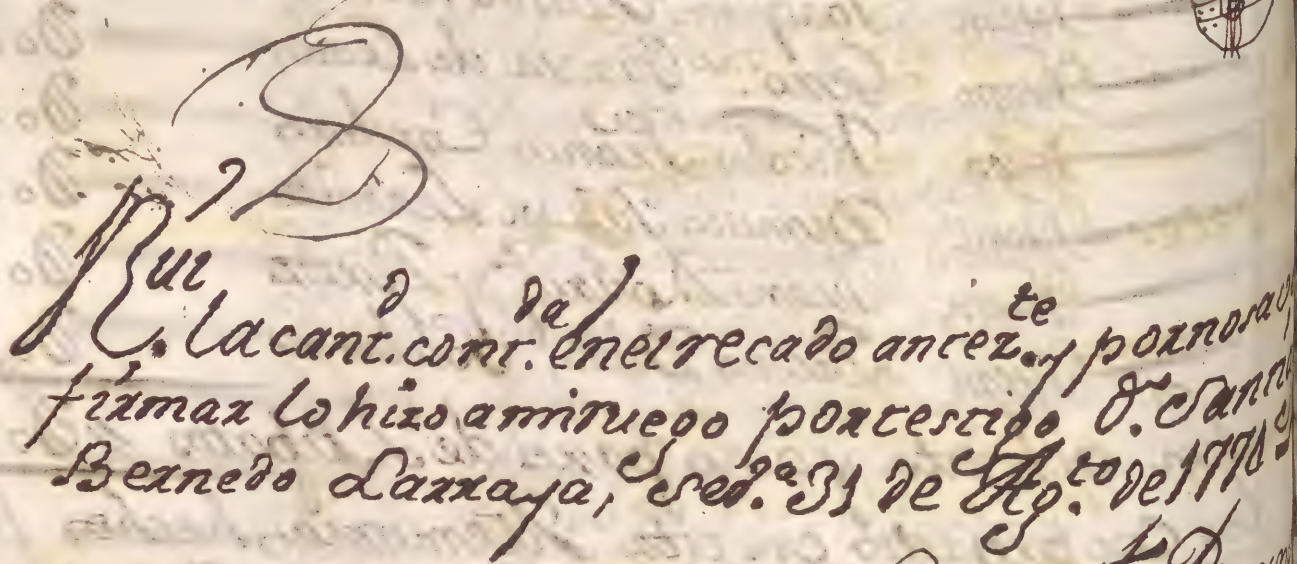 Rui
la cant.d cont.da en el recado antez.te y por no sav
firmar lo hizo a mi ruego por testigo D.n Santi
Bernedo Larraya, Sed.a 31 de Ag.to de 1771